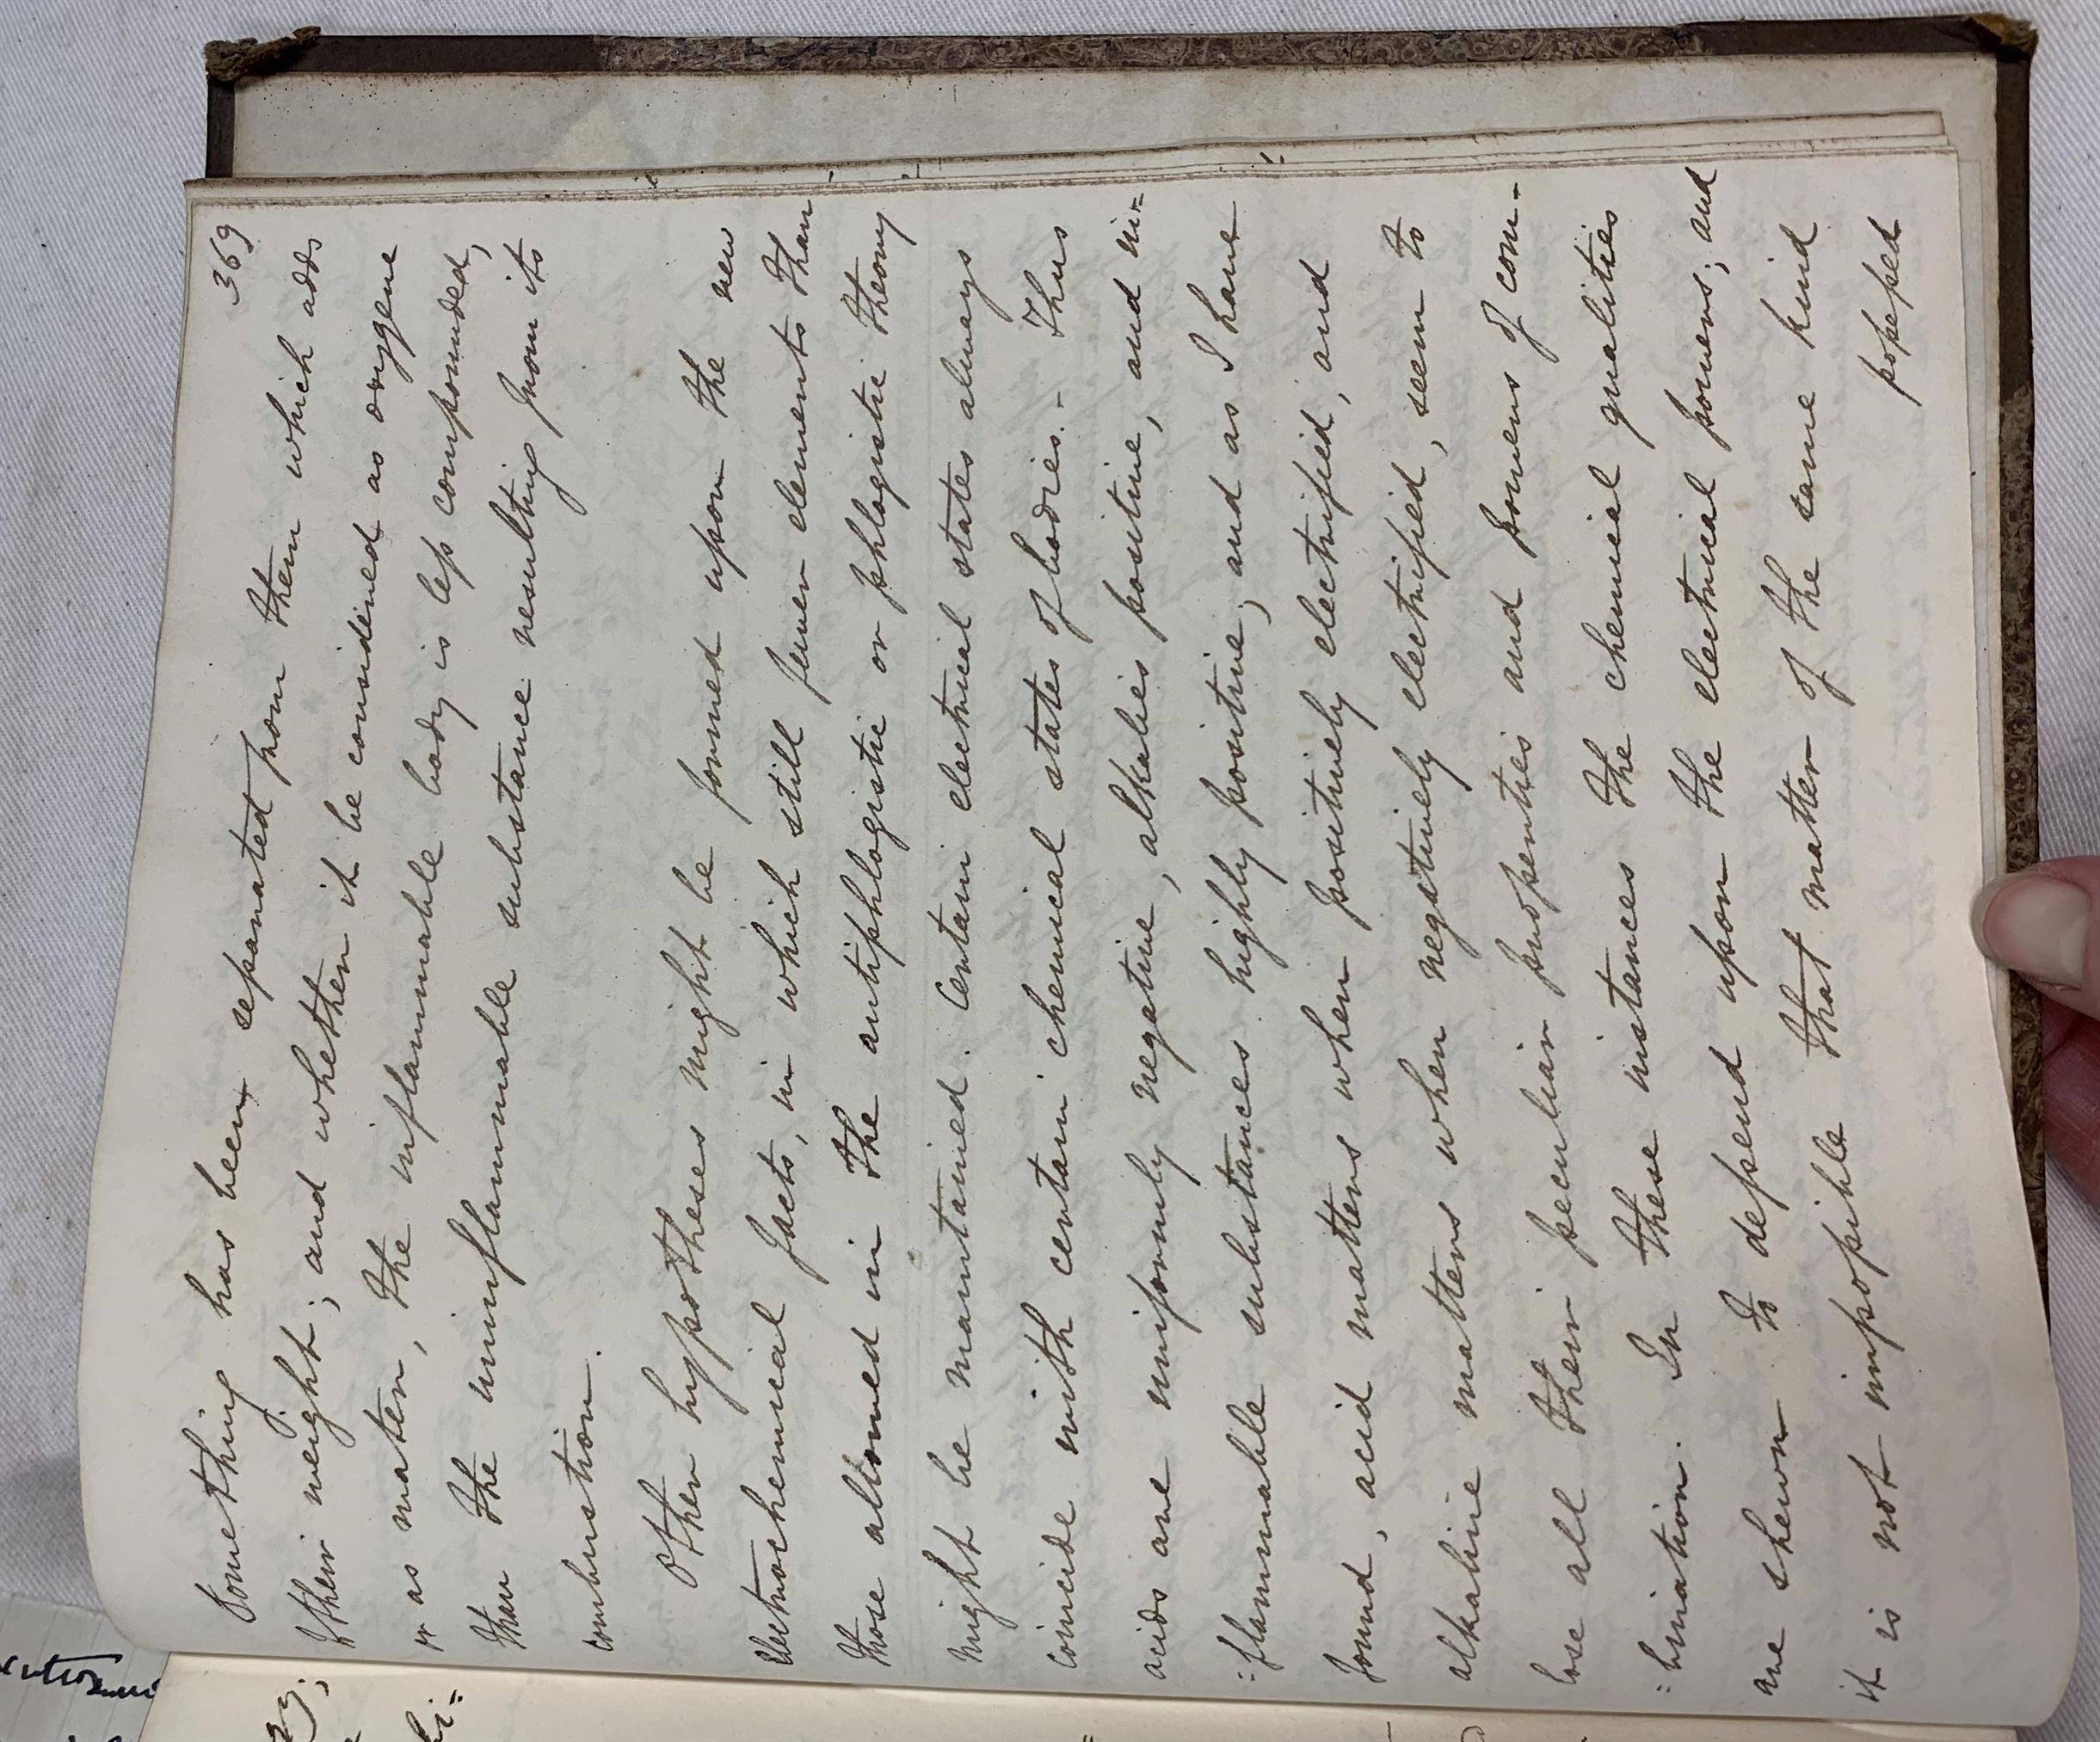 369
Something has been separated from them which adds
to their weight; and whether it be considered as oxygene
or as water, the inflammable body is less compounded,
than the uninflammable substance resulting from its
combustion.
Other hypotheses might be formed upon the new
electrochemical facts, in which still fewer elements than
those allowed in the antiphlogistic or phlogistic theory
might be maintained. Certain electrical states always
coincide with certain chemical states of bodies. – Thus
acids are uniformly negative, alkalies positive, and in=
=flammable substances highly positive; and as I have
found, acid matters when positively electrified, and
alkaline matters when negatively electrified, seem to
lose all their peculiar properties and powers of com-
=bination. In these instances the chemical qualities
are shewn to depend upon the electrical powers; and
it is not impossible that matter of the same kind
possessed